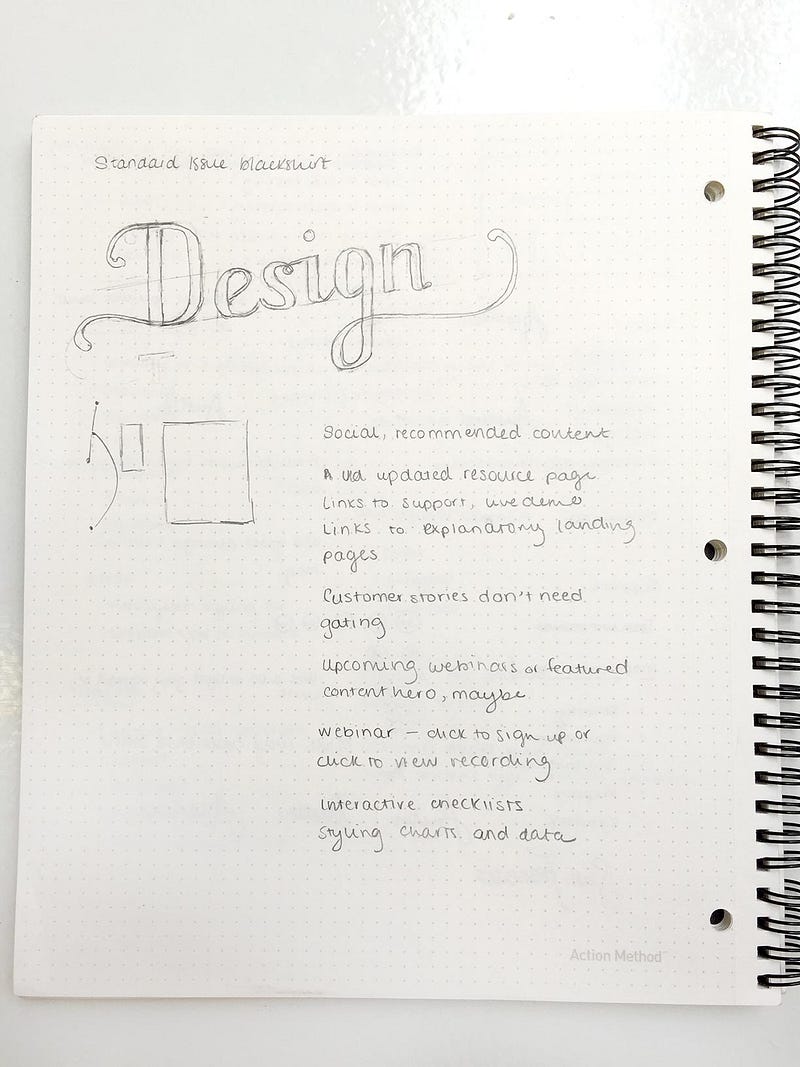 Standard Issue blackshirt
Design
Social, recommended content
updated resource page
Links to support, live demo
Links to explanatory landing
pages
Customer stories don't need
gating
Upcoming webinars or featured
content hero, maybe
webinar – click to sign up or
click to view recording
Interactive checklists
Styling charts and data
Action Method